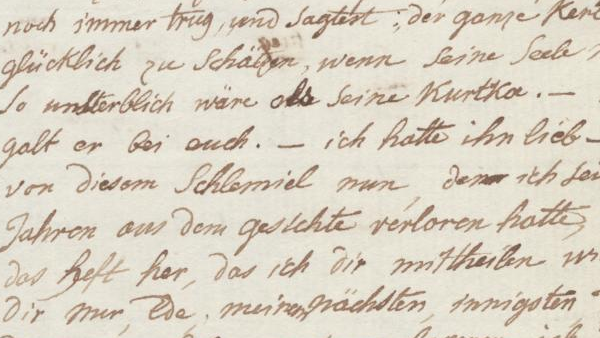 noch immer trug, und sagtest: „der ganze Kerl
glücklich zu schäzen, wenn seine Seele
so unsterblich wäre als seine Kurtka. —
galt er bei euch. — ich hatte ihn lieb —
von diesem Schlemiel nun den ich sei
Jahren aus dem gesichte verloren hatte,
das heft her, das ich dir mittheilen
dir nur, Ede, meinem nächsten, innigsten